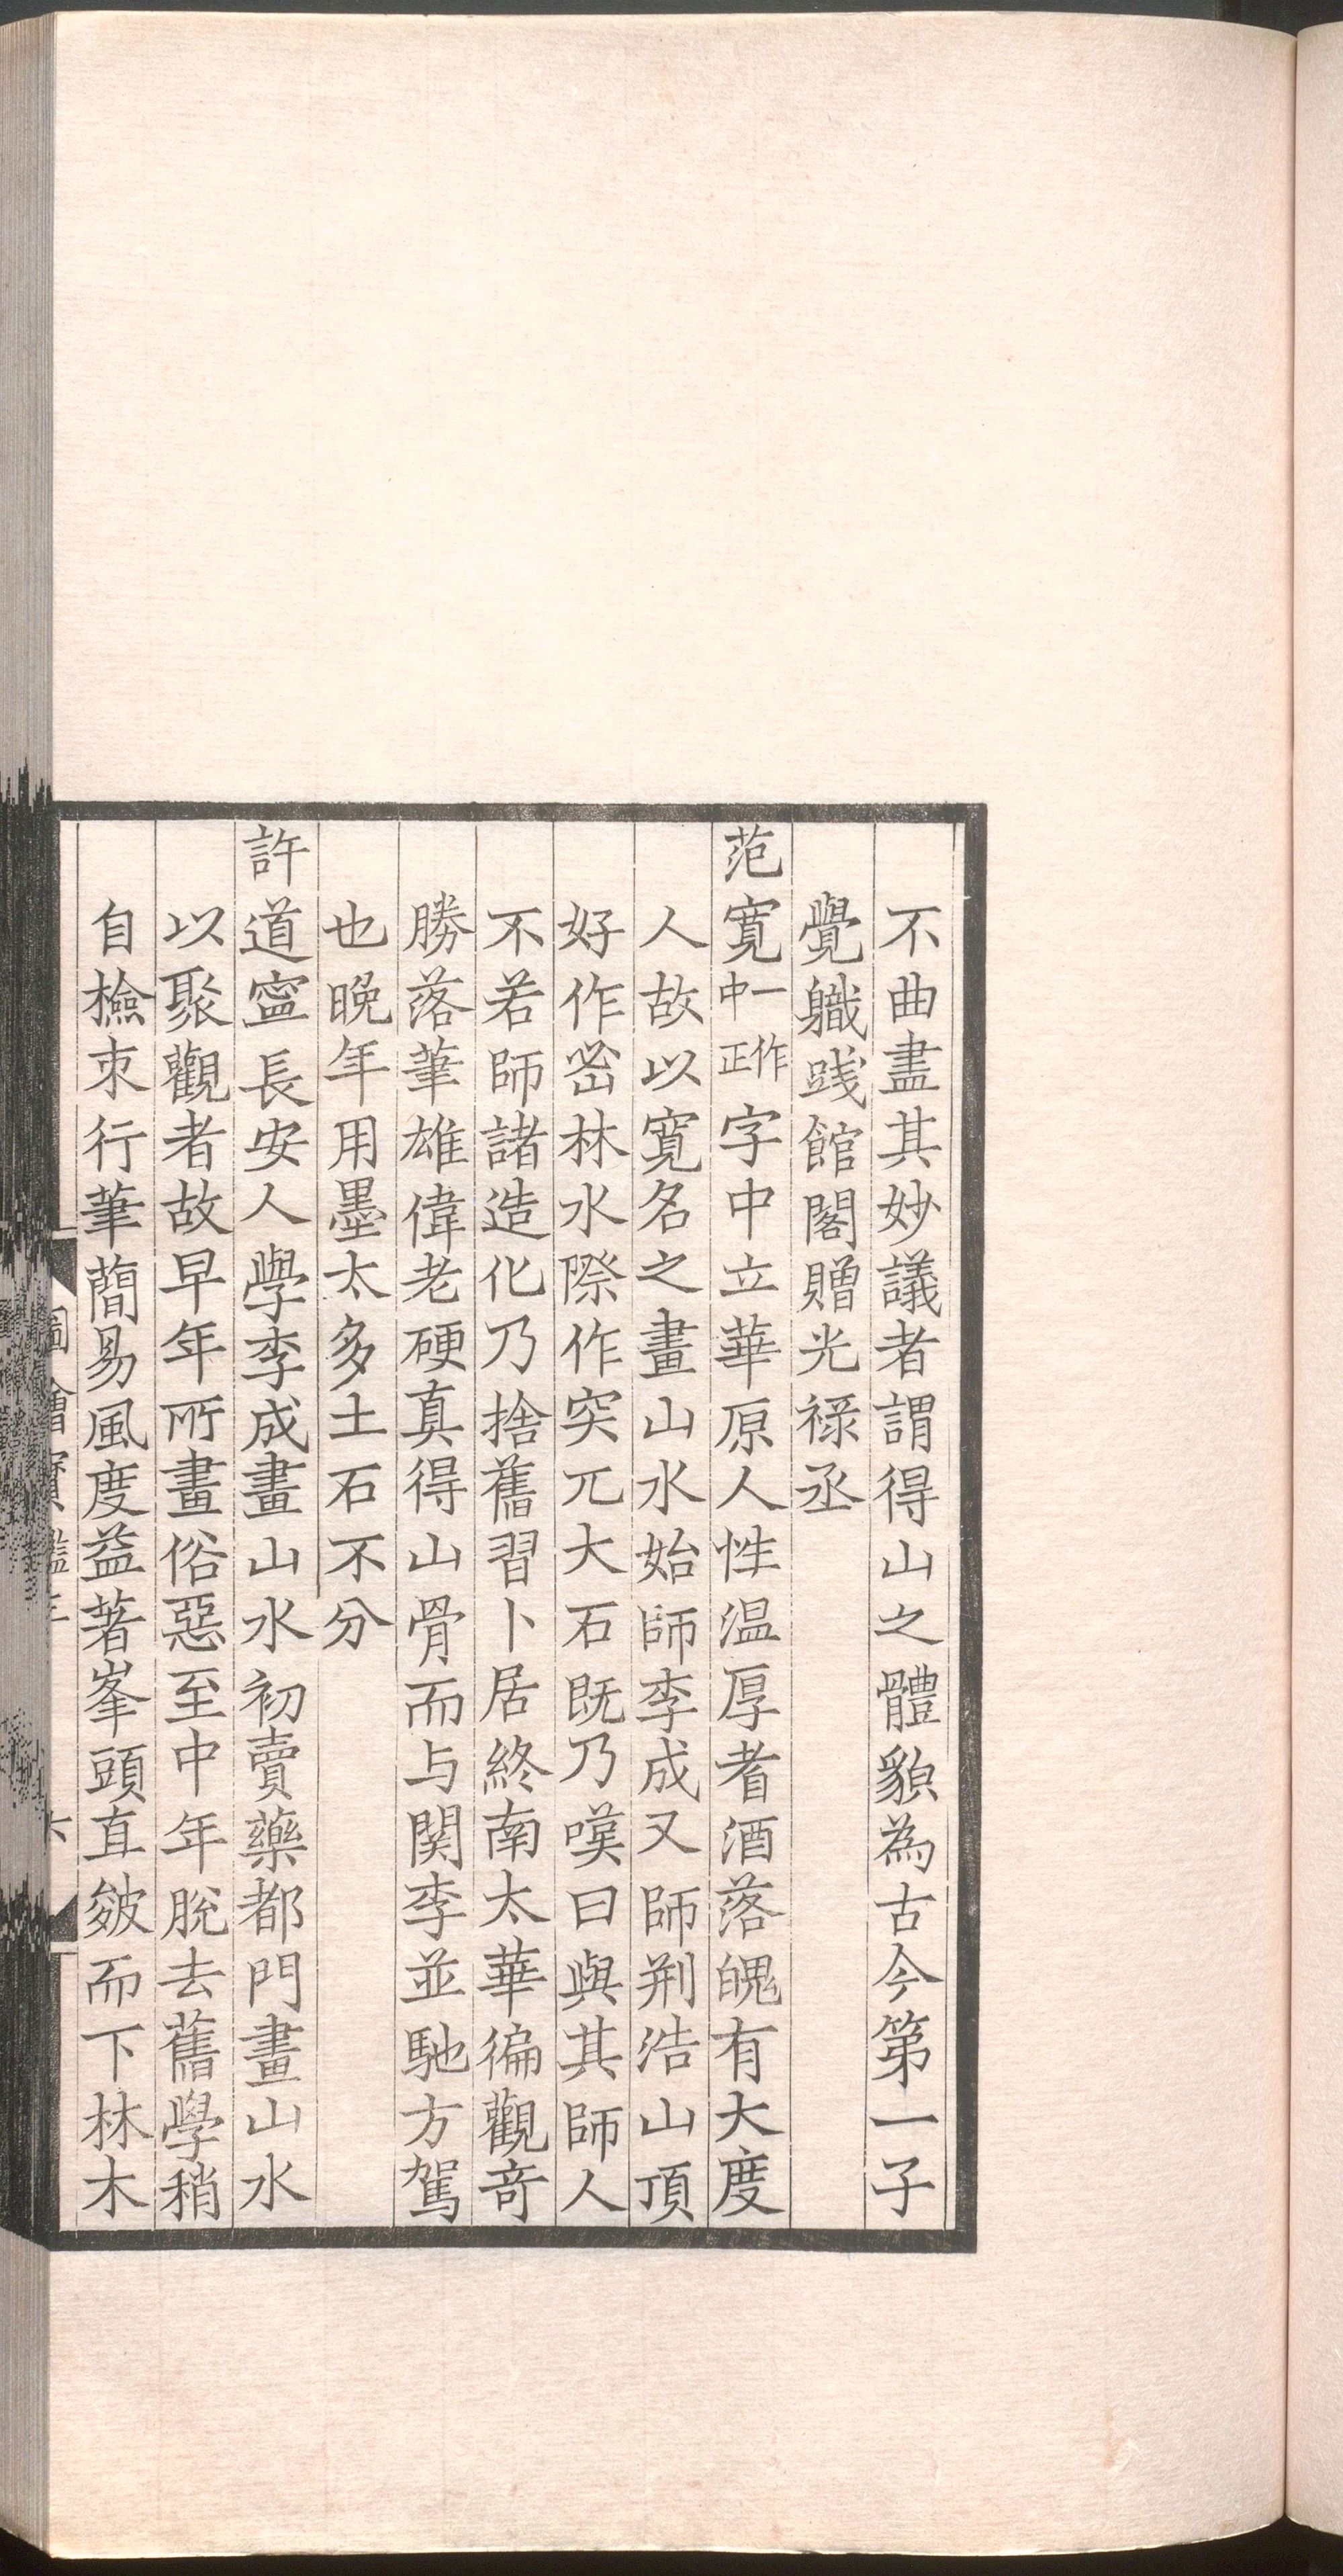 不曲盡其妙議者謂得山之體貌為古今第一子
覺職踐館閣贈光祿丞
范寬一作中正字中立華原人性温厚耆酒落魄有大度
人故以寬名之畫山水始師李成又師荆浩山頂
好作密林水際作突兀大石既乃嘆曰與其師人
不若師諸造化乃捨舊習卜居終南太華徧觀奇
勝落筆雄偉老硬真得山骨而与関李並馳方駕
也晚年用墨太多土石不分
許道寧長安人學李成畫山水初賣藥都門畫山水
以聚觀者故早年所畫俗惡至中年脫去舊學稍
自檢束行筆簡易風度益著峯頭直皴而下林木